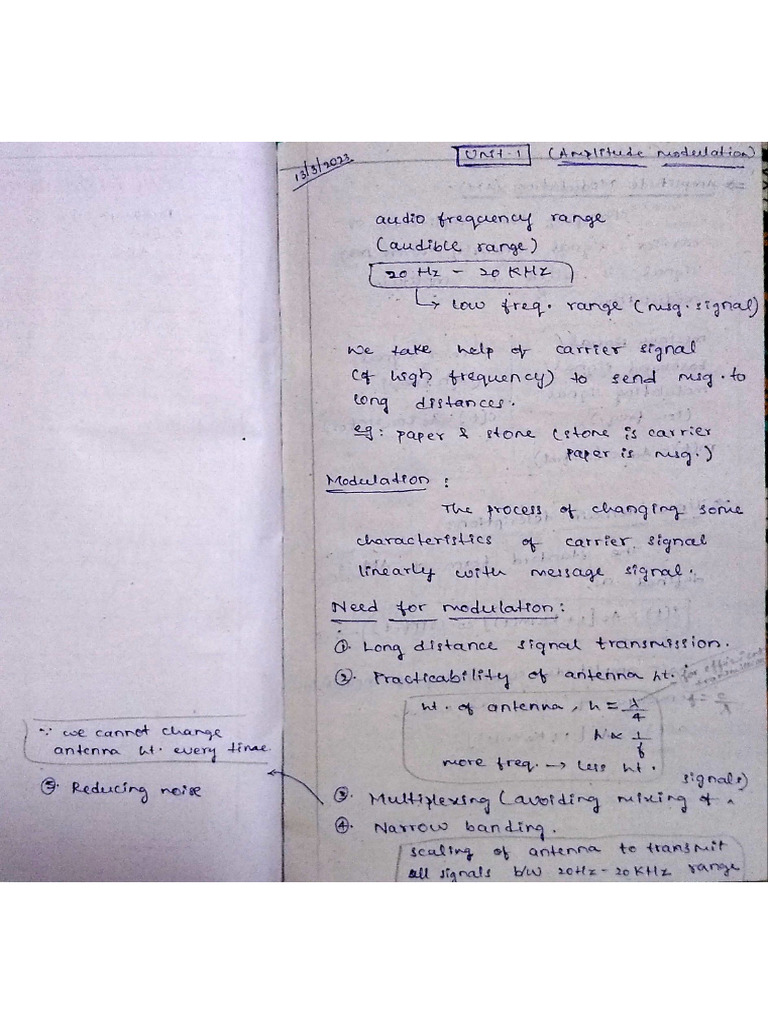 13/3/2023
Unit-1 (Amplitude modulation)
audio frequency range
(audible range)
20 Hz - 20 KHz
↳ low freq. range (msg. signal)
We take help of carrier signal
(of high frequency) to send msg. to
long distances.
eg: paper & stone (stone is carrier
paper is msg.)
Modulation :
The process of changing some
characteristics of carrier signal
linearly with message signal.
Need for modulation:
①. Long distance signal transmission.
②. Practicability of antenna ht. :
for efficient
transmission
ht. of antenna, h = λ/4
f = c/λ
h ∝ 1/f
more freq. → less ht.
signals)
③. Multiplexing (avoiding mixing of ^
④. Narrow banding.
scaling of antenna to transmit
all signals b/w 20Hz - 20KHz range
∵ we cannot change
antenna ht. every time.
⑤. Reducing noise